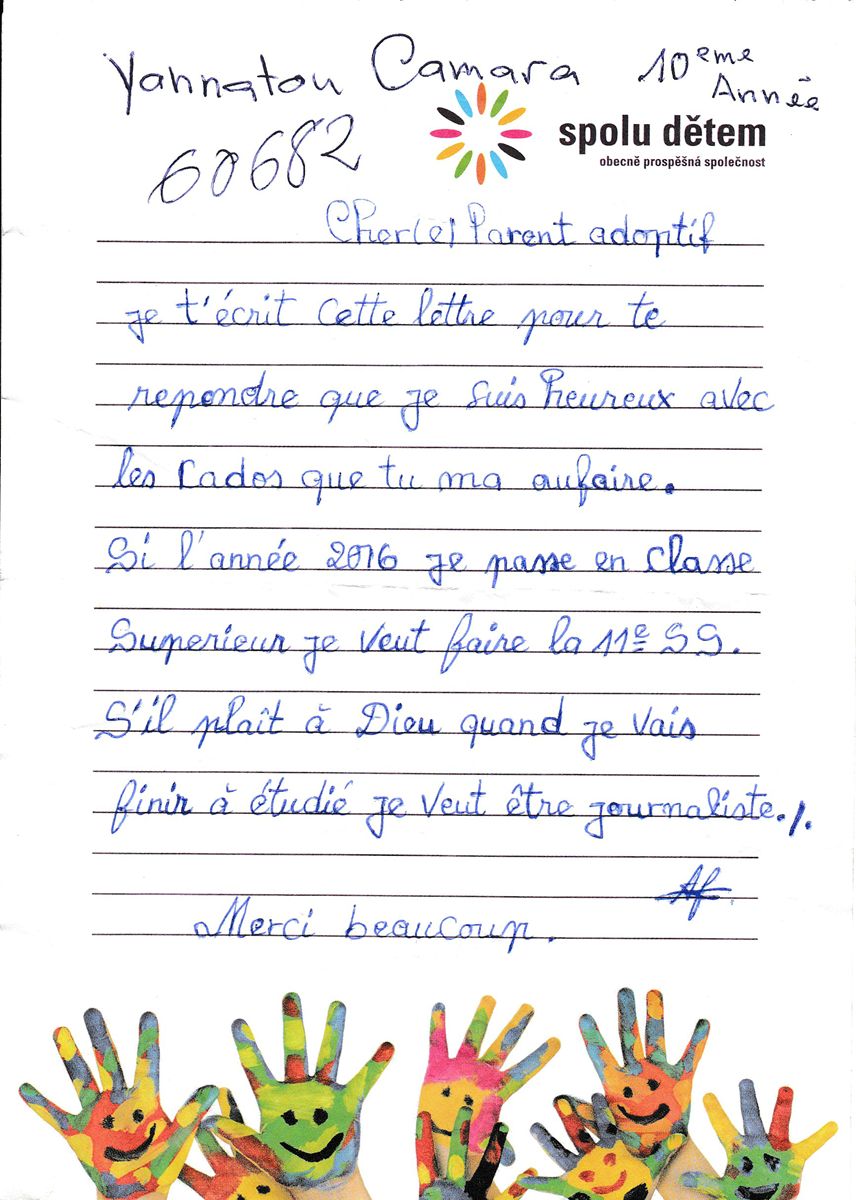 Yannatou Camara 10eme Année
60682
spolu dětem
obecně prospěšná společnost
Cher(e) Parent adoptif
je t'écrit cette lettre pour te
repondre que je suis heureux avec
les Cados que tu ma aufaire.
Si l'année 2016 je passe en Classe
Superieur je veut faire la 11e SS.
S'il plaît à Dieu quand je vais
finir à étudié je veut être journaliste./.
Merci beaucoup.